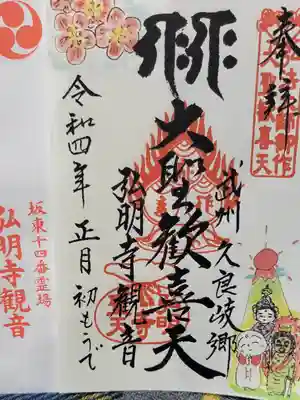 奉拝
武州 久良岐郷
大聖歓喜天
弘明寺観音
令和四年 正月 初もうで
坂東十四番霊場
弘明寺観音